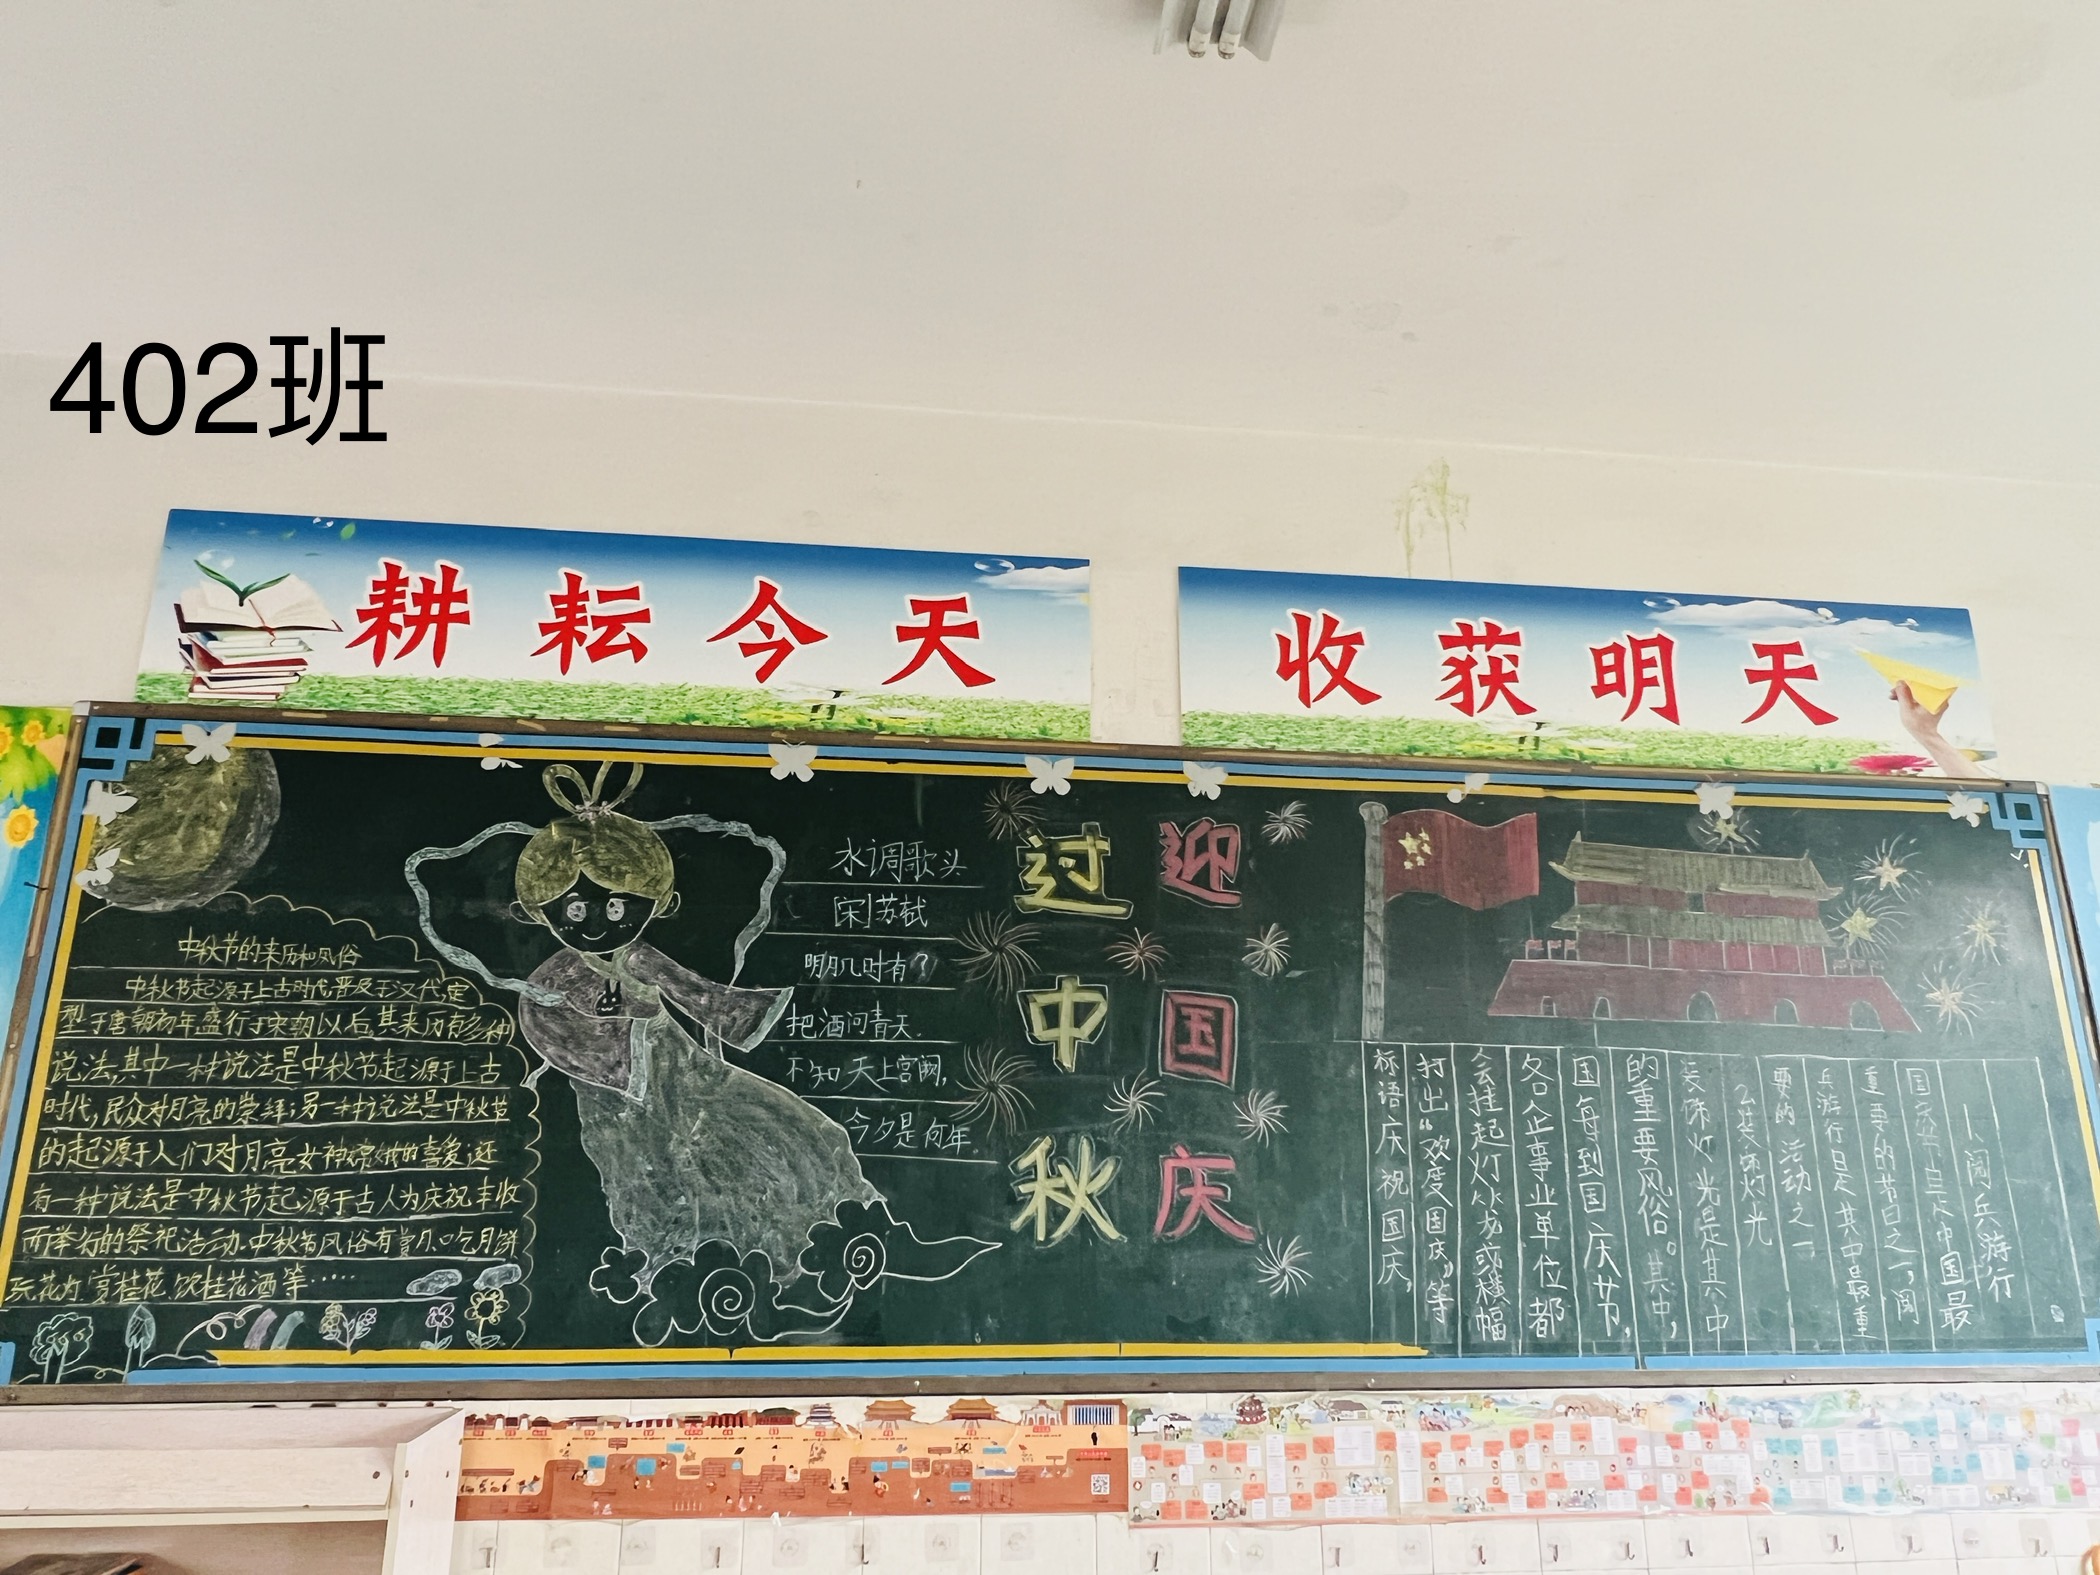 402班
耕耘今天
收获明天
中秋节的来历和风俗
中秋节起源于上古时代,普及于汉代,定
型于唐朝初年,盛行于宋朝以后,其来历有多种
说法,其中一种说法是中秋节起源于上古
时代,民众对月亮的崇拜;另一种说法是中秋节
的起源于人们对月亮女神嫦娥的喜爱,还
有一种说法是中秋节起源于古人为庆祝丰收
而举行的祭祀活动.中秋节风俗有赏月、吃月饼
玩花灯、赏桂花、饮桂花酒等……
水调歌头
[宋]苏轼
明月几时有?
把酒问青天.
不知天上宫阙,
今夕是何年.
迎国庆
过中秋
1、阅兵游行
国庆节是中国最
重要的节日之一,阅
兵游行是其中最重
要的活动之一
2、装饰灯光
装饰灯光是其中
的重要风俗。其中,
国每到国庆节,
各企事业单位都
会挂起灯火龙或横幅
打出“欢度国庆”等
标语庆祝国庆,